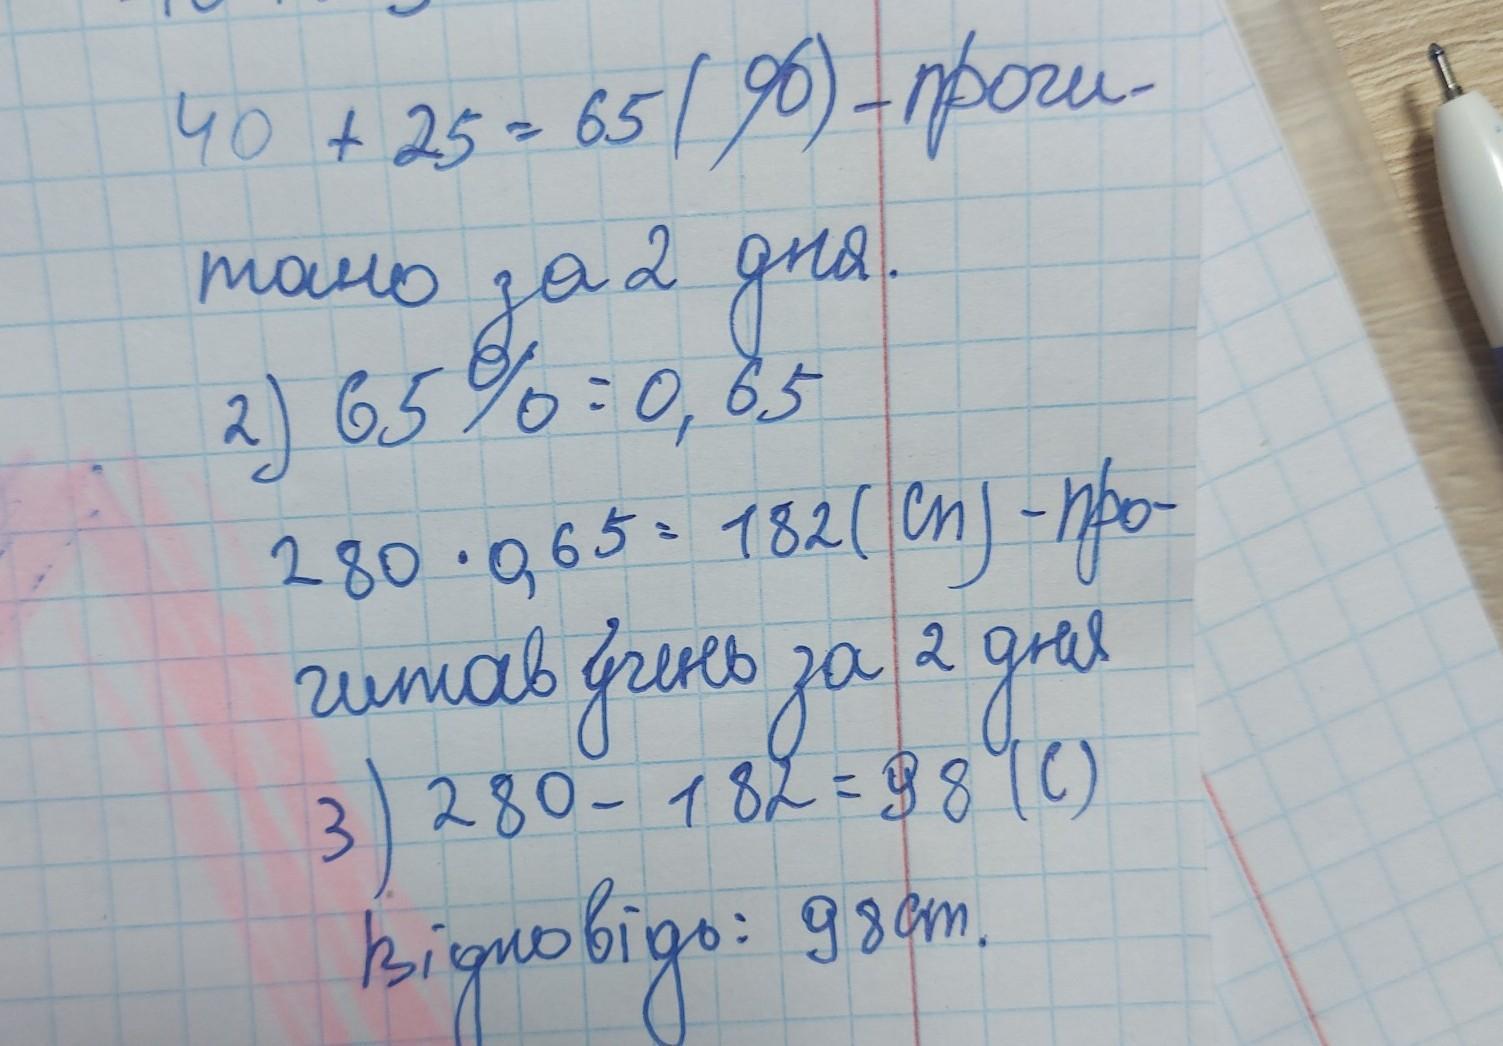 40 + 25 = 65 (%) - прочи-
тано за 2 дня.
2) 65% = 0,65
280 · 0,65 = 182 (Сп) - про-
читав учень за 2 дня
3) 280 - 182 = 98 (С)
Відповідь: 98 ст.